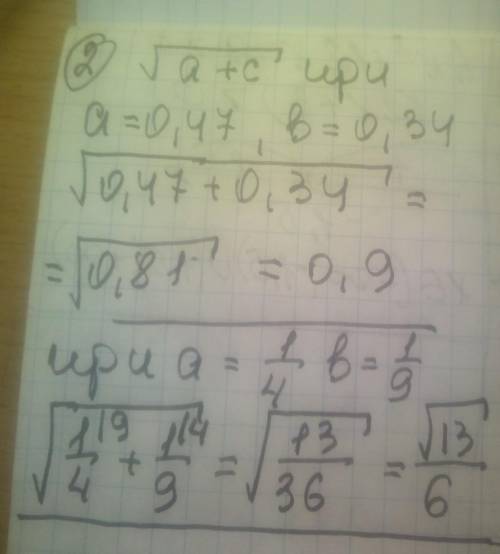 ② √(a+c) при
a=0,47, в=0,34
√(0,47+0,34) =
= √(0,81) = 0,9
при a = 1/4 в = 1/9
√(1/4 ⁽⁹ + 1/9 ⁽⁴) = √(13/36) = √13/6